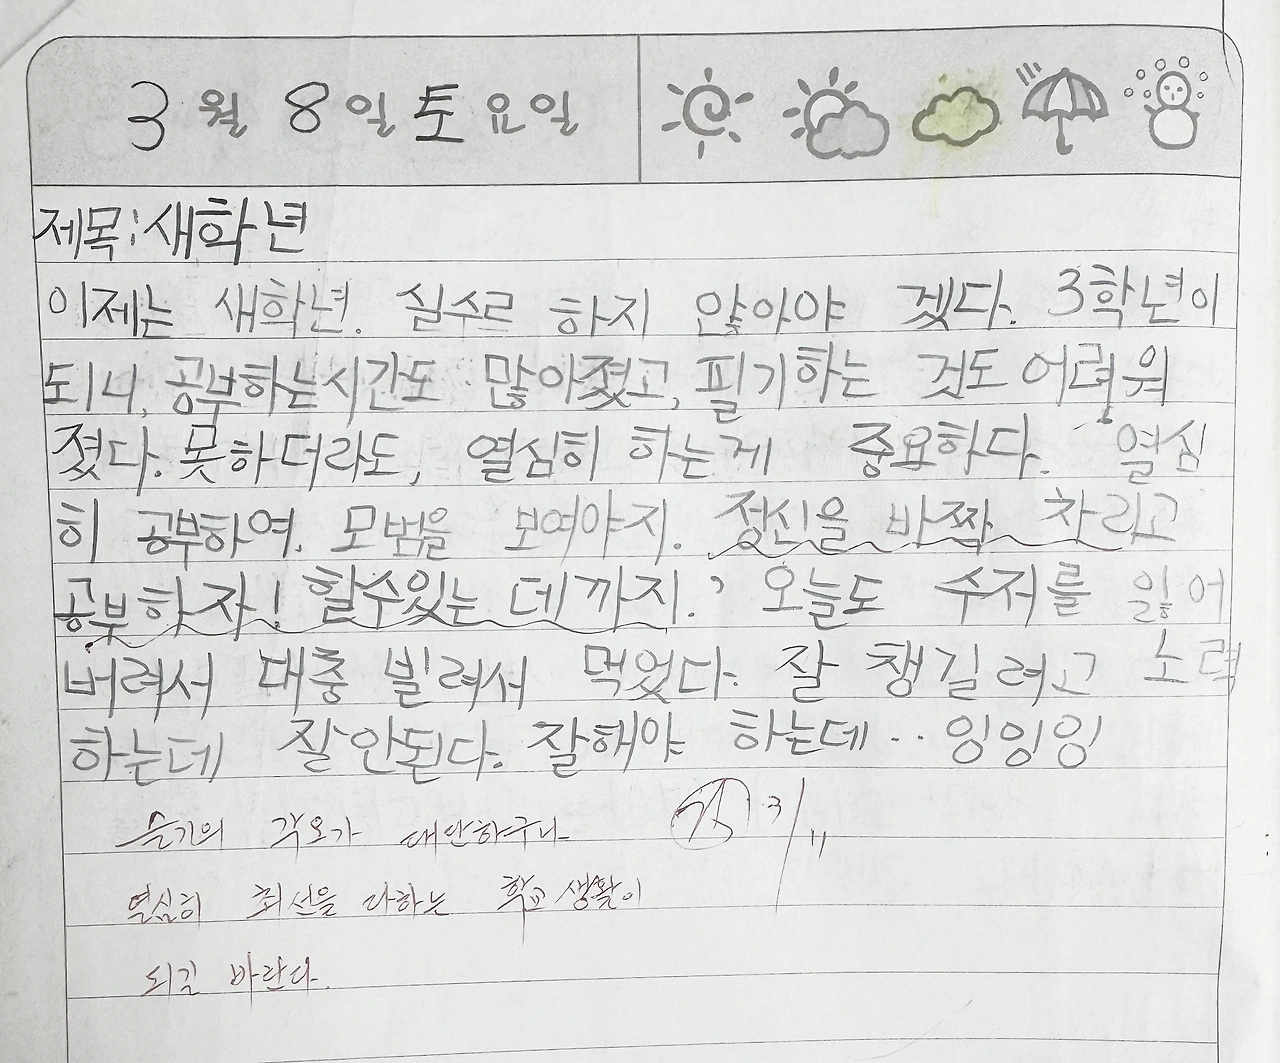 3월 8일 토요일
제목:새학년
이제는 새학년. 실수르 하지 않아야 겠다. 3학년이
되니, 공부하는시간도 많아졌고, 필기하는 것도 어려워
졌다. 못하더라도, 열심히 하는게 중요하다. 열심
히 공부하여. 모범을 보여야지. 정신을 바짝 차리고
공부하자! 할수있는 데까지.' 오늘도 수저를 잃어
버려서 대충 빌려서 먹었다. 잘 챙길려고 노력
하는데 잘안된다. 잘해야 하는데·· 잉잉잉
슬기의 각오가 대단하구나 3/11
열심히 최선을 다하는 학교생활이
되길 바란다.